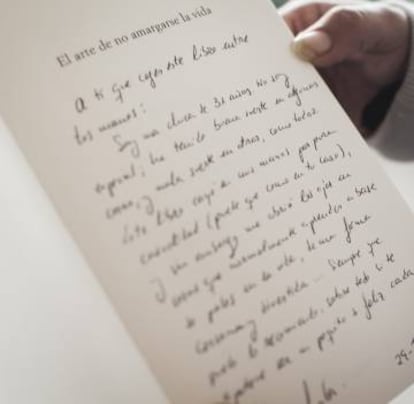 El arte de no amargarse la vida
A ti que coges este libro entre
tus manos:
Soy una chica de 31 años. No soy
especial; he tenido buena suerte en algunas
cosas, y mala suerte en otras, como todos.
Este libro cayó en mis manos por pura
casualidad (puede que como en tu caso),
y sin embargo me abrió los ojos en
cosas que normalmente aprendes a base
de palos en la vida, de una forma
cercana y divertida... Siempre que
puedo lo recomiendo, sobre todo si te
un poquito + feliz cada
29-